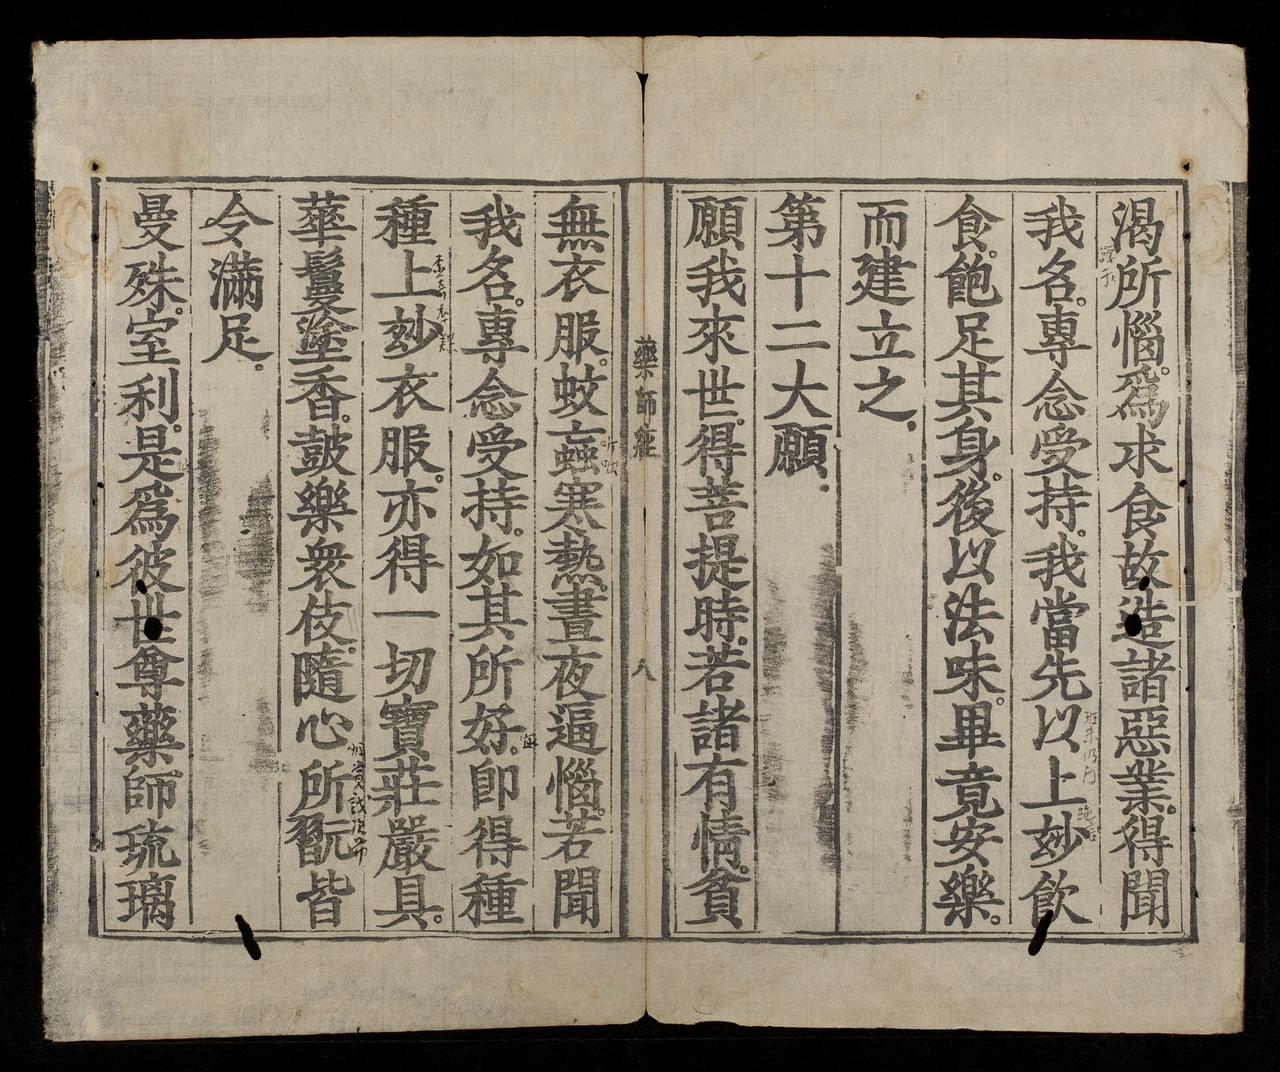 渴所惱。爲求食故造諸惡業。得聞
我名。專念受持。我當先以上玅飮
食。飽足其身。後以法味。畢竟安樂。
而建立之。
第十二大願。
願我來世。得菩提時。若諸有情。貧
藥師經
八
無衣服。蚊䖟寒熱。晝夜逼惱。若聞
我名。專念受持。如其所好。卽得種
種上玅衣服。亦得一切寶莊嚴具。
華鬘塗香。皷樂衆伎。隨心所翫皆
令滿足。
曼殊。室利。是爲彼世尊藥師琉璃